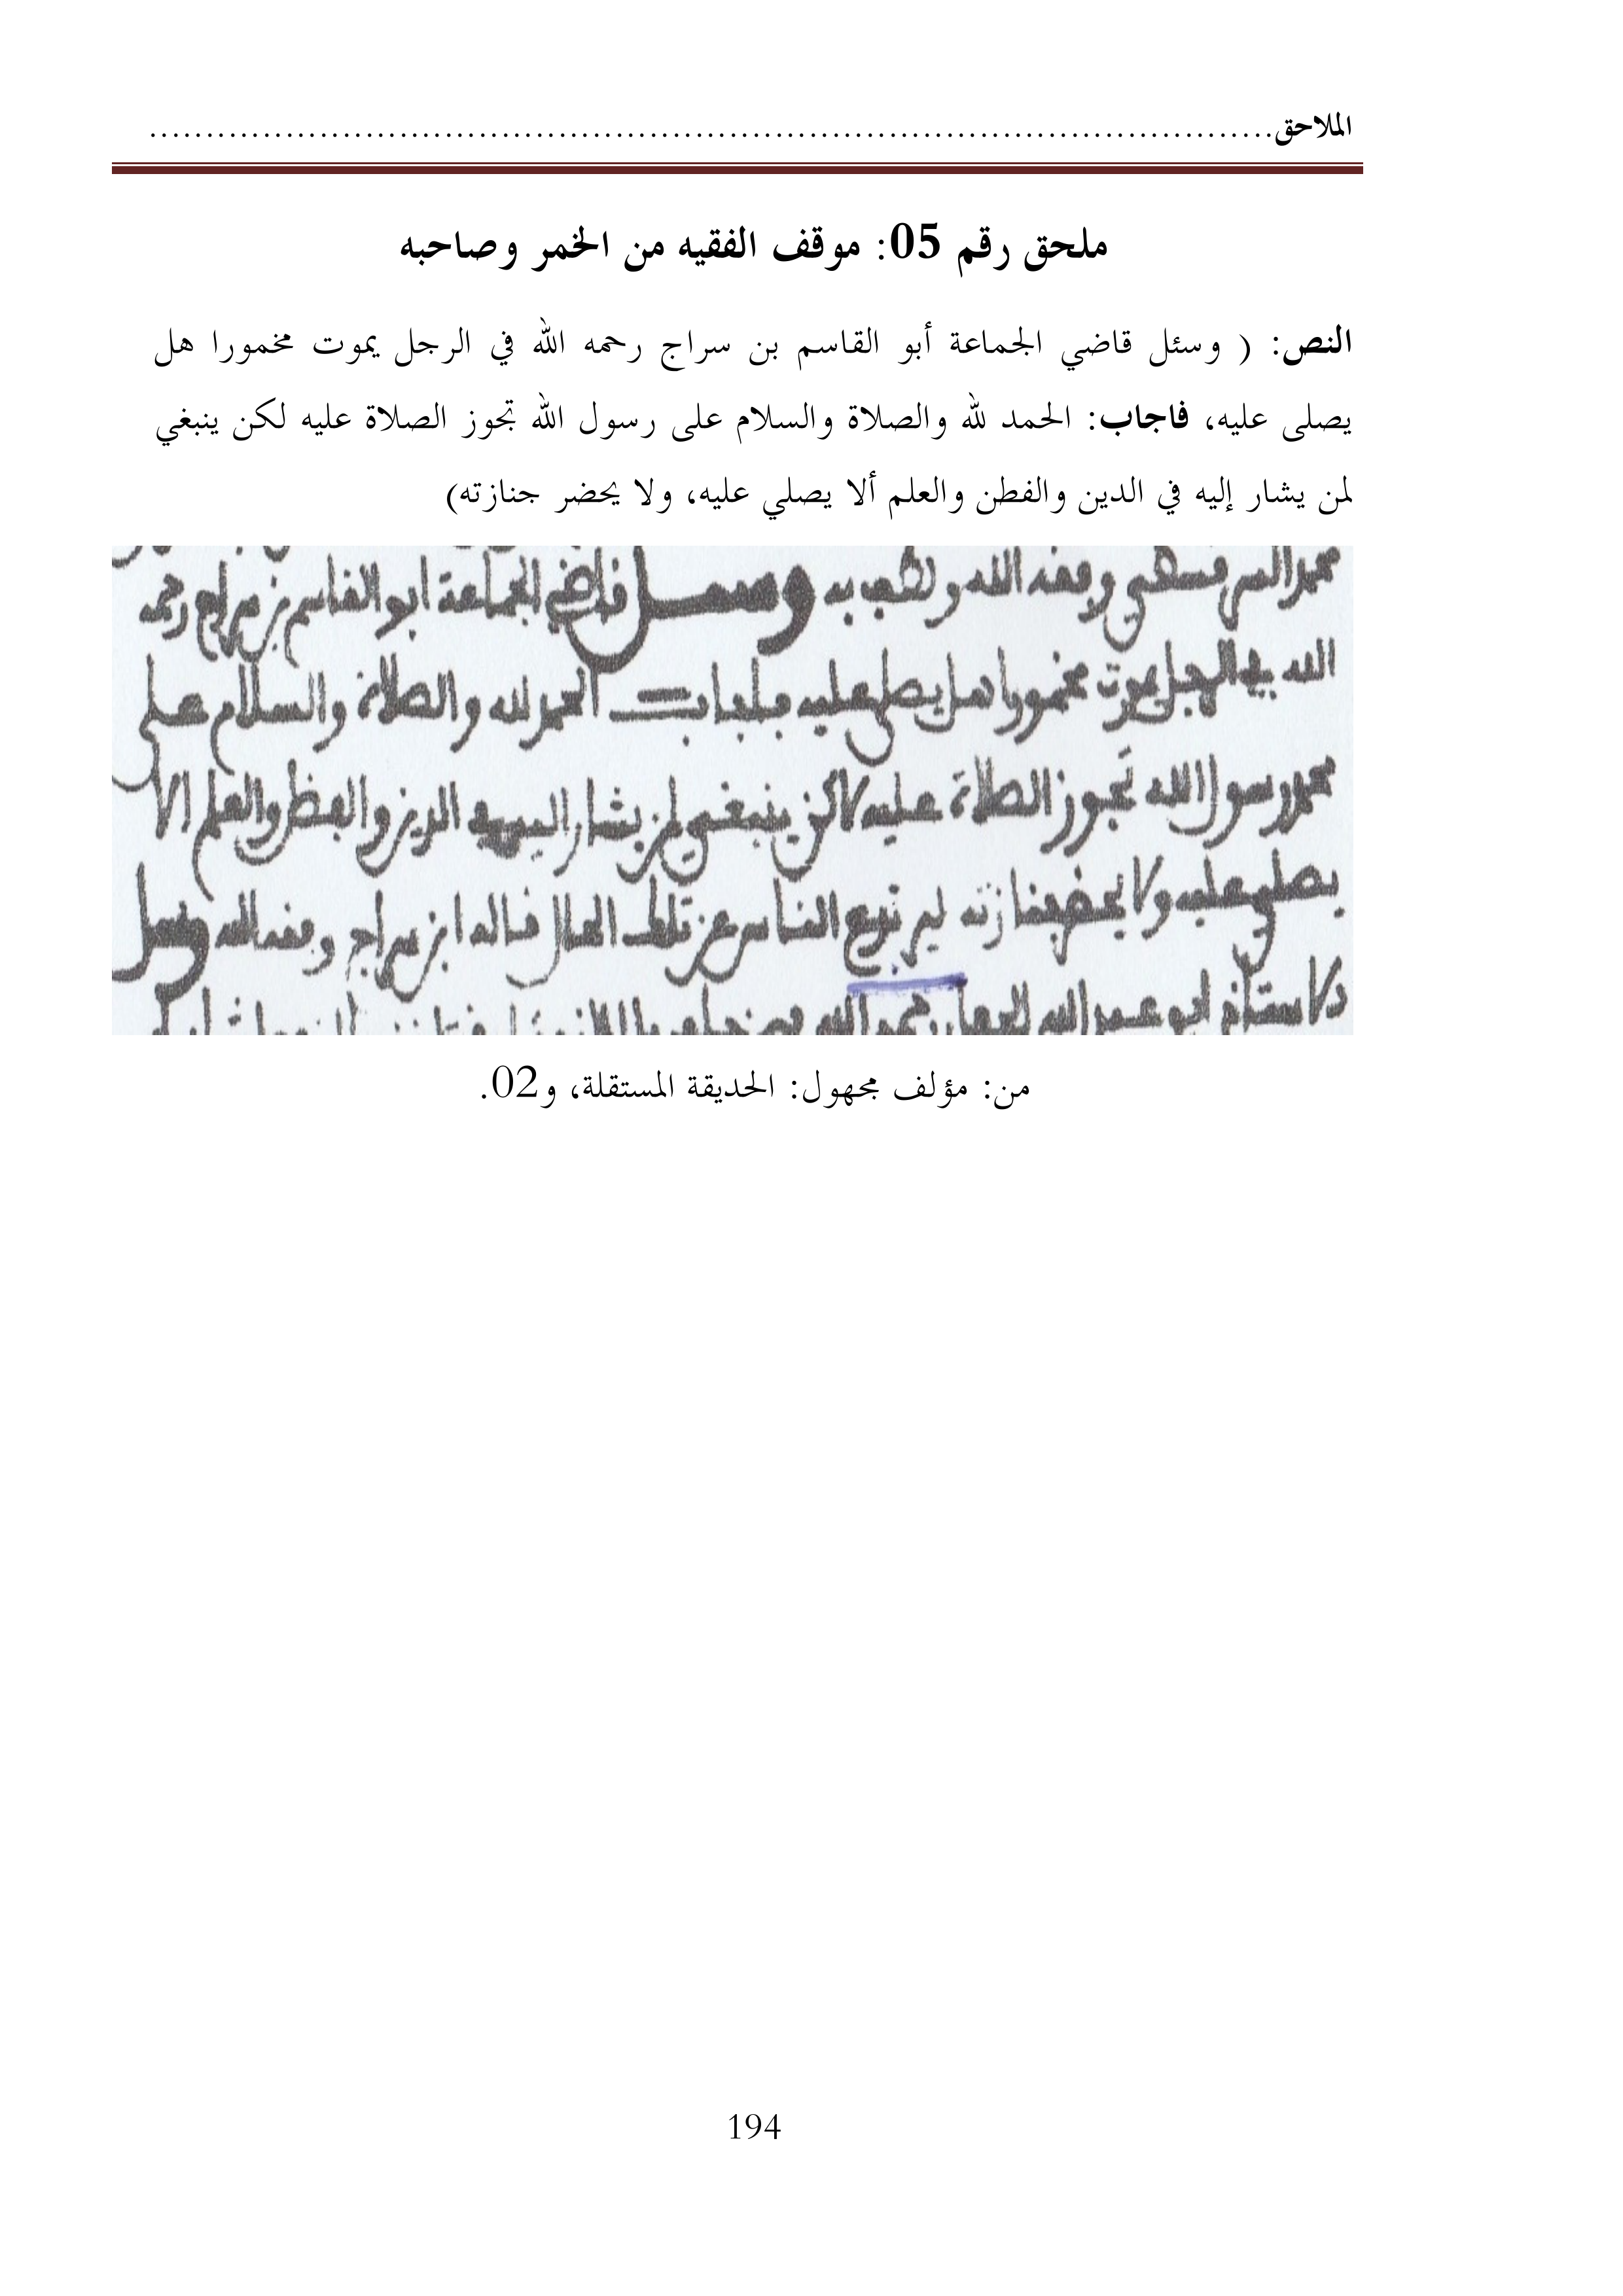 الملاحق....................................................................................................
ملحق رقم 05: موقف الفقيه من الخمر وصاحبه
النص: ( وسئل قاضي الجماعة أبو القاسم بن سراج رحمه الله في الرجل يموت مخمورا هل
يصلى عليه، فاجاب: الحمد لله والصلاة والسلام على رسول الله تجوز الصلاة عليه لكن ينبغي
لمن يشار إليه في الدين والفطن والعلم ألا يصلي عليه، ولا يحضر جنازته)
وفقه الله ولطف به وسـل قاضي الجماعة ابو القاسم بن سراج رحمه
الله في الرجل يموت مخمورا هل يصلى عليه فاجاب الحمد لله والصلاة والسلام على
محمد رسول الله تجوز الصلاة عليه لاكن ينبغي لمن يشار اليه في الدين والفطن والعلم الا
يصلي عليه ولا يحضر جنازته الناس عن تلك الحال قاله ابن سراج وفقه الله وسل
الاستاذ ابو عبد الله
من: مؤلف مجهول: الحديقة المستقلة، و02.
194